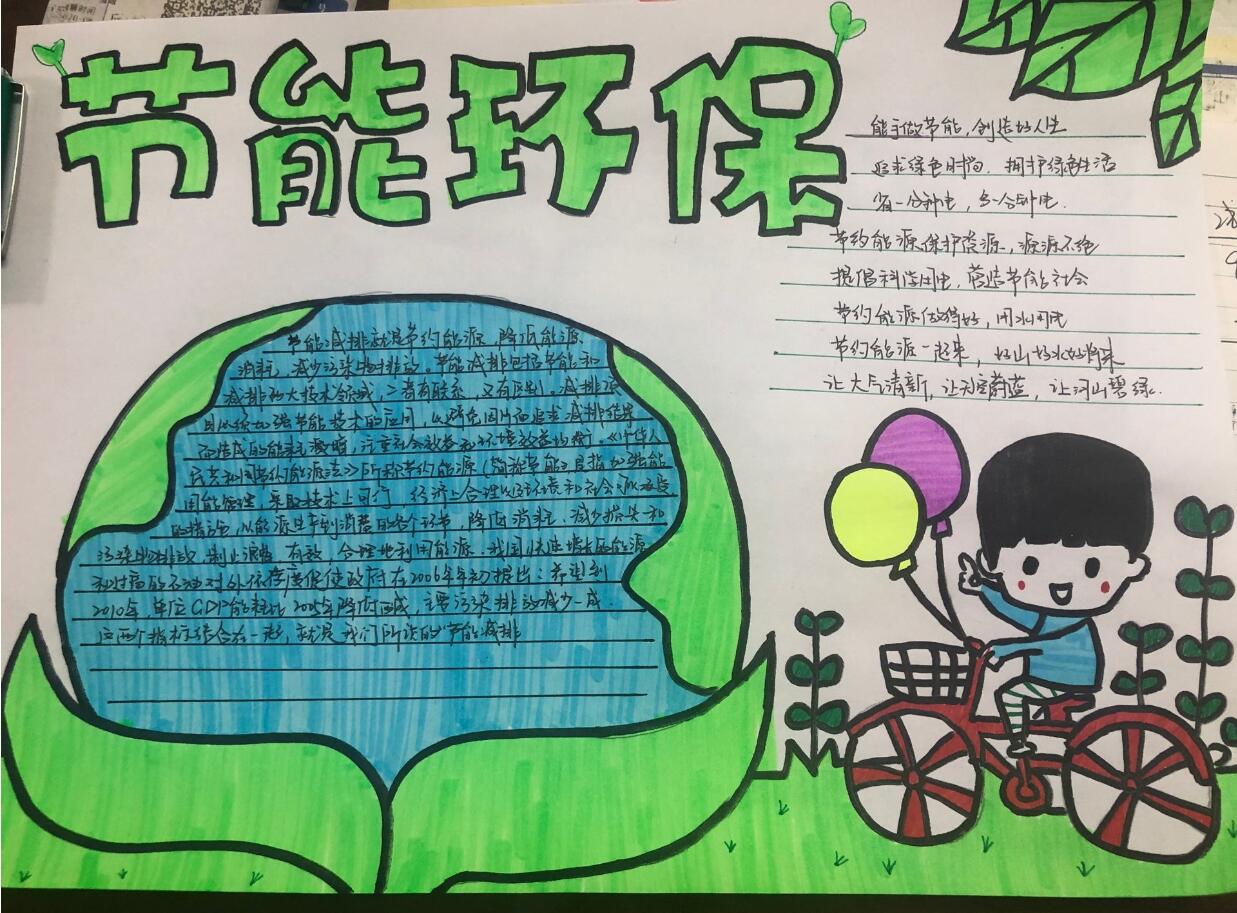 节能环保
能手做节能,创造好人生
追求绿色时尚,拥护绿色生活
省一分钟电,多一分钟电.
节约能源保护资源,源源不绝
提倡科学用电,营造节能社会
节约能源做得好,用水用电
节约能源一起来,好山好水好将来
让大气清新,让天空蔚蓝,让河山碧绿.
节能减排就是节约能源、降低能源
消耗、减少污染物排放。节能减排包括节能和
减排两大技术领域,二者有联系,又有区别。减排项
目必须加强节能技术的应用,以避免因片面追求减排结果
而造成的能耗激增,注重社会效益和环境效益均衡。《中华人
民共和国节约能源法》所称节约能源(简称节能)是指加强能
用能管理,采取技术上可行、经济上合理以及环境和社会可以承受
的措施,从能源生产到消费的各个环节,降低消耗、减少损失和
污染物排放、制止浪费,有效、合理地利用能源。我国快速增长的能源
和过高的石油对外依存度促使政府在2006年年初提出:希望到
2010年,单位GDP能耗比2005年降低两成、主要污染排放减少一成.
这两个指标结合在一起,就是我们所说的“节能减排